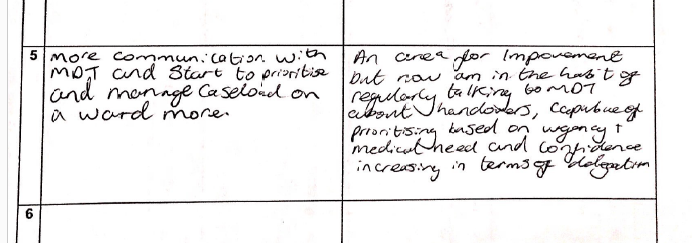 5
more communication with
MDT and Start to prioritise
and manage Caseload on
a ward more.
An area for Impovement
but now am in the habit of
regularly talking to MDT
about handovers, capable of
prioritising based on urgency +
medical need and confidence
increasing in terms of delegation
6